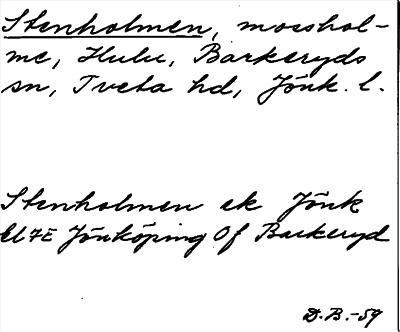 Stenholmen, mosshol-
me, Hulu, Barkeryds
sn, Tveta hd, Jönk. l.
Stenholmen ek Jönk
7E Jönköping Of Barkeryd
D.B.-59